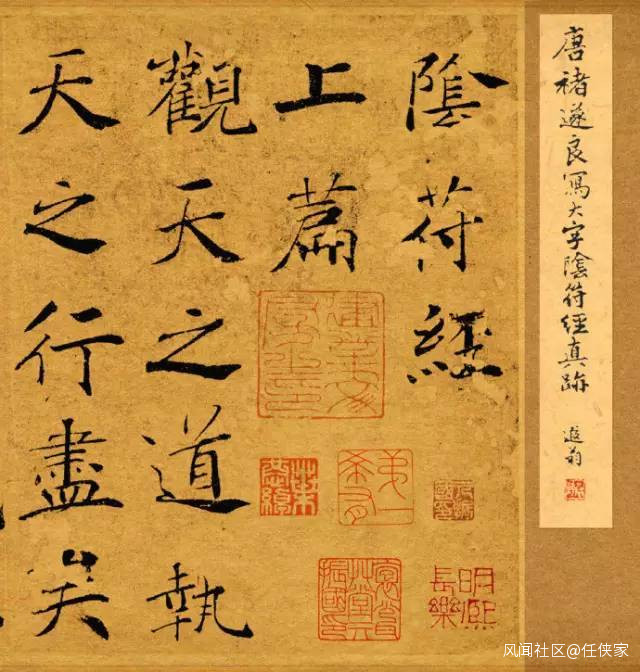 唐褚遂良寫大字陰符經真跡
遐翁
陰符經
上篇
觀天之道執
天之行盡矣
明熙
長樂
风闻社区@任侠家